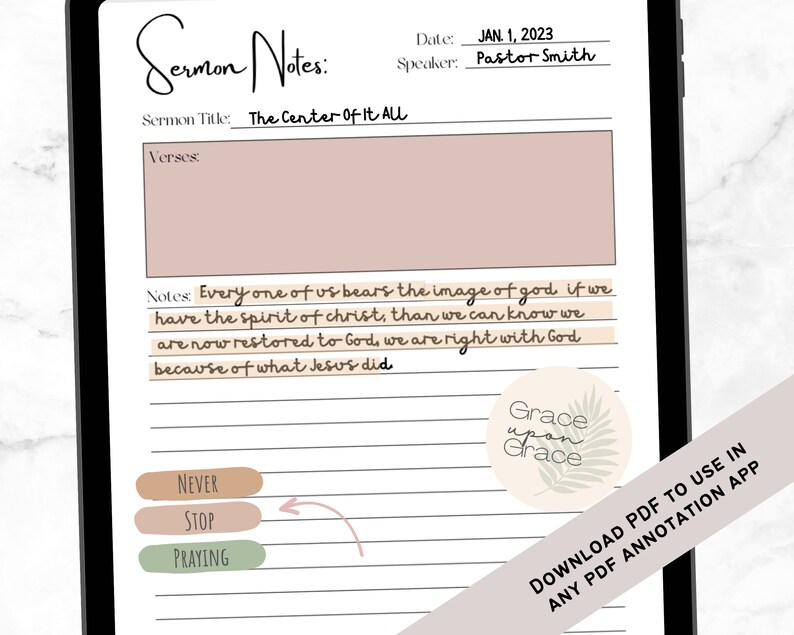 Sermon Notes:
Date: JAN. 1, 2023
Speaker: Pastor Smith
Sermon Title: The Center Of It All
Verses:
Notes: Every one of us bears the image of god if we
have the spirit of christ, than we can know we
are now restored to God, we are right with God
because of what Jesus did.
Grace
upon
Grace
NEVER
STOP
PRAYING
DOWNLOAD PDF TO USE IN
ANY PDF ANNOTATION APP